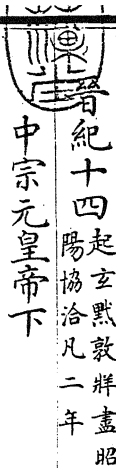 晉紀十四
起玄黓敦牂盡昭
陽協洽凡二年
中宗元皇帝下